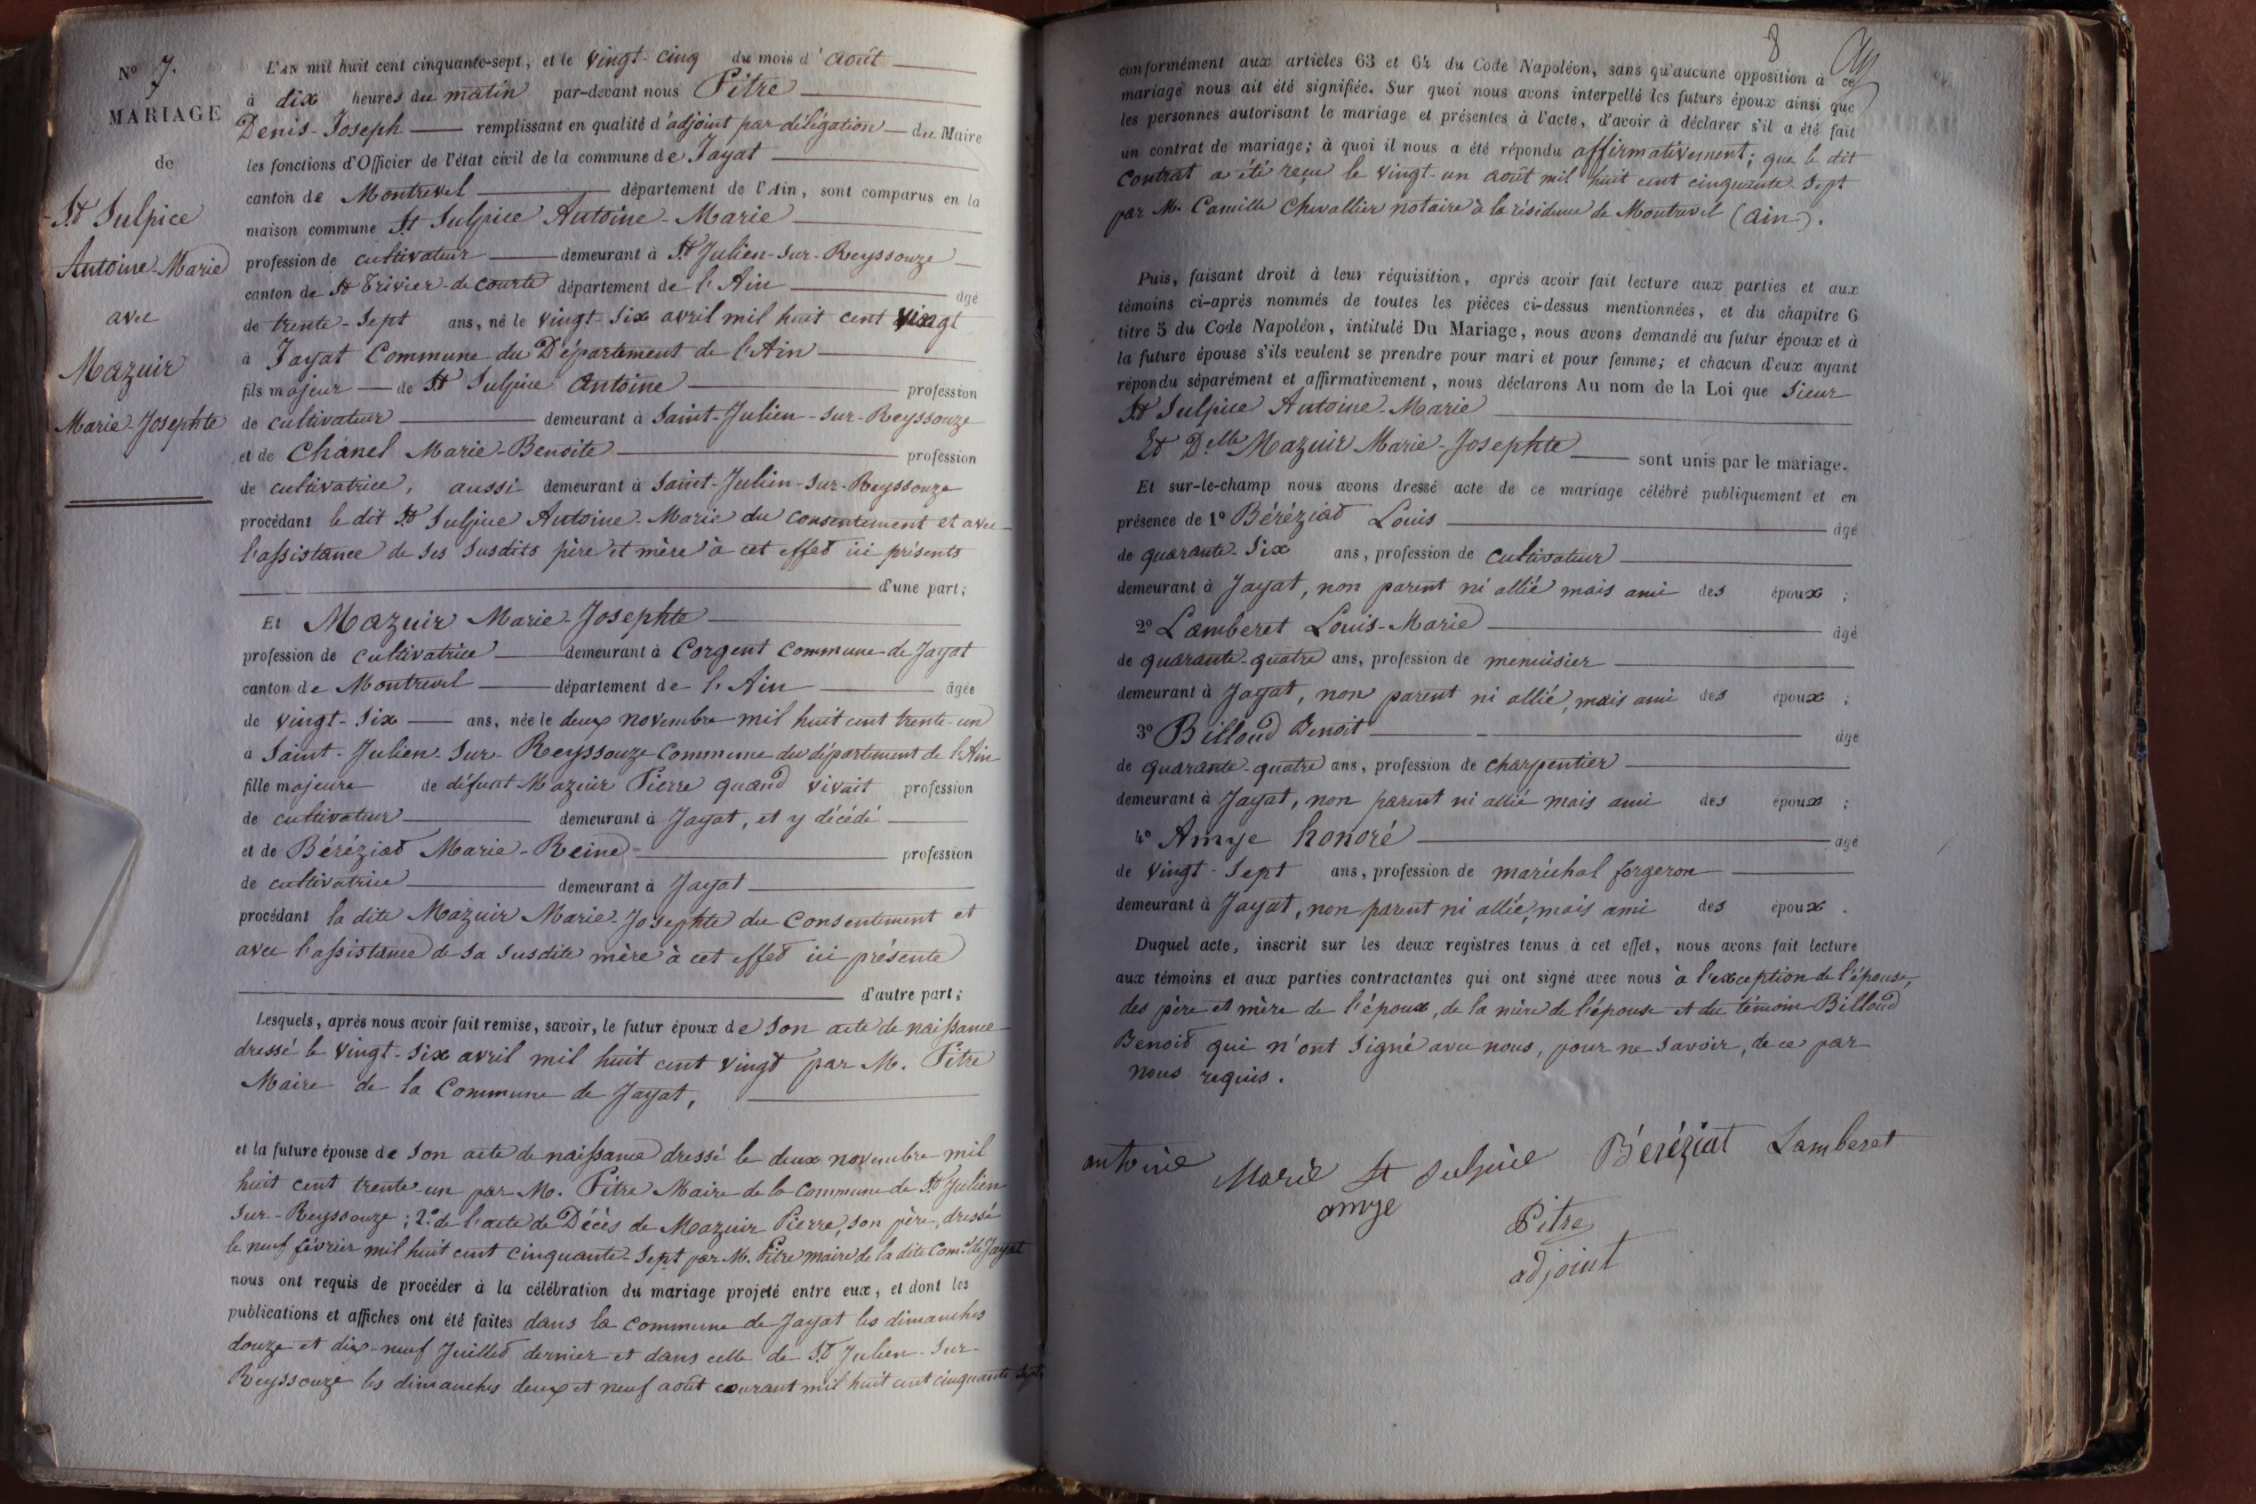 N° 7.
MARIAGE
de
St Sulpice
Antoine-Marie
avec
Mazuir
Marie-Josephte
L'AN mil huit cent cinquante-sept, et le vingt-cinq du mois d'août
à dix heures du matin par-devant nous Pitre
Denis-Joseph remplissant en qualité d'adjoint par délégation du Maire
les fonctions d'Officier de l'état civil de la commune de Jayat
canton de Montrevel département de l'Ain, sont comparus en la
maison commune St Sulpice Antoine-Marie
profession de cultivateur demeurant à St Julien-sur-Reyssouze
canton de St Trivier-de-courte département de l'Ain âgé
de trente-sept ans, né le vingt-six avril mil huit cent vingt
à Jayat Commune du Département de l'Ain
fils majeur de St Sulpice Antoine profession
de cultivateur demeurant à Saint-Julien-sur-Reyssouze
et de Chanel Marie-Benoite profession
de cultivatrice, aussi demeurant à Saint-Julien-sur-Reyssouze
procédant le dit St Sulpice Antoine-Marie du consentement et avec
l'assistance de ses susdits père et mère à cet effet ici présents
d'une part;
Et Mazuir Marie-Josephte
profession de cultivatrice demeurant à Corgent commune de Jayat
canton de Montrevel département de l'Ain âgée
de vingt-six ans, née le deux novembre mil huit cent trente-un
à Saint-Julien-sur-Reyssouze Commune du département de l'Ain
fille majeure de défunt Mazuir Pierre quand vivait profession
de cultivateur demeurant à Jayat, et y décédé
et de Béréziat Marie-Reine profession
de cultivatrice demeurant à Jayat
procédant la dite Mazuir Marie-Josephte du consentement et
avec l'assistance de sa susdite mère à cet effet ici présente
d'autre part;
Lesquels, après nous avoir fait remise, savoir, le futur époux de son acte de naissance
dressé le vingt-six avril mil huit cent vingt par M. Pitre
Maire de la Commune de Jayat,
et la future épouse de son acte de naissance dressé le deux novembre mil
huit cent trente-un par M. Pitre Maire de la commune de St Julien
sur-Reyssouze; 2° de l'acte de Décès de Mazuir Pierre, son père, dressé
le neuf février mil huit cent cinquante-sept par M. Pitre maire de la dite Com.e de Jayat
nous ont requis de procéder à la célébration du mariage projeté entre eux, et dont les
publications et affiches ont été faites dans la commune de Jayat les dimanches
douze et dix-neuf Juillet dernier et dans celle de St Julien-sur-
Reyssouze les dimanches deux et neuf août courant mil huit cent cinquante-sept
8
conformément aux articles 63 et 64 du Code Napoléon, sans qu'aucune opposition à ce
mariage nous ait été signifiée. Sur quoi nous avons interpellé les futurs époux ainsi que
les personnes autorisant le mariage et présentes à l'acte, d'avoir à déclarer s'il a été fait
un contrat de mariage; à quoi il nous a été répondu affirmativement; que le dit
contrat a été reçu le vingt-un août mil huit cent cinquante-sept
par M. Camille Chevallier notaire à la résidence de Montrevel (ain).
Puis, faisant droit à leur réquisition, après avoir fait lecture aux parties et aux
témoins ci-après nommés de toutes les pièces ci-dessus mentionnées, et du chapitre 6
titre 5 du Code Napoléon, intitulé Du Mariage, nous avons demandé au futur époux et à
la future épouse s'ils veulent se prendre pour mari et pour femme; et chacun d'eux ayant
répondu séparément et affirmativement, nous déclarons Au nom de la Loi que sieur
St Sulpice Antoine-Marie
Et Delle Mazuir Marie-Josephte sont unis par le mariage.
Et sur-le-champ nous avons dressé acte de ce mariage célébré publiquement et en
présence de 1° Béréziat Louis âgé
de quarante-six ans, profession de cultivateur
demeurant à Jayat, non parent ni allié mais ami des époux;
2° Lamberet Louis-Marie âgé
de quarante-quatre ans, profession de menuisier
demeurant à Jayat, non parent ni allié, mais ami des époux;
3° Billoud Benoit âgé
de quarante-quatre ans, profession de charpentier
demeurant à Jayat, non parent ni allié mais ami des époux;
4° Amye honoré âgé
de vingt-sept ans, profession de maréchal forgeron
demeurant à Jayat, non parent ni allié, mais ami des époux.
Duquel acte, inscrit sur les deux registres tenus à cet effet, nous avons fait lecture
aux témoins et aux parties contractantes qui ont signé avec nous à l'exception de l'épouse,
des père et mère de l'époux, de la mère de l'épouse et du témoin Billoud
Benoit qui n'ont signé avec nous, pour ne savoir, de ce par
nous requis.
antoine Marie St Sulpice Béréziat Lamberet
amye Pitre
adjoint